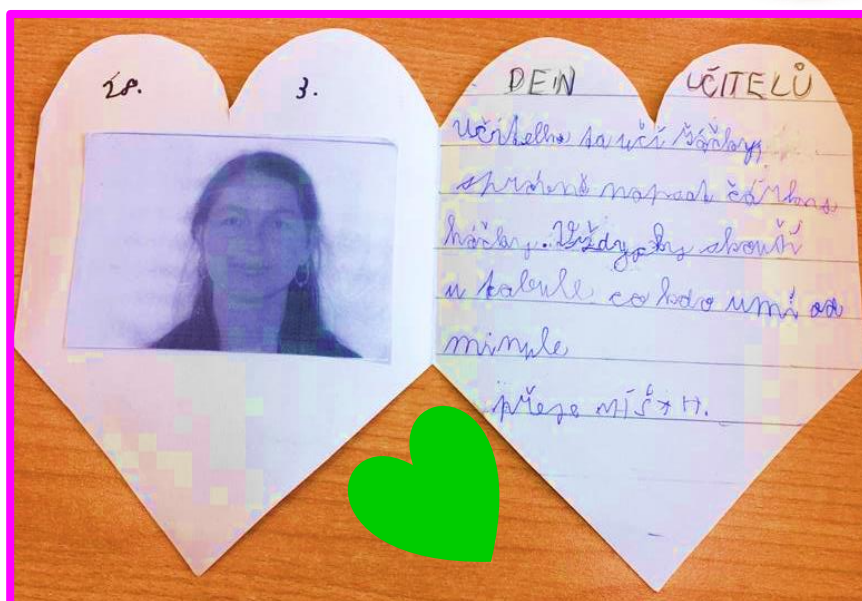 28. 3.
DEN UČITELŮ
Učitelka ta učí žáčky,
správně napsat čárky a
háčky. Vždy, by zkouší
u tabule co kdo umí od
minule
přeje MÍŠA H.